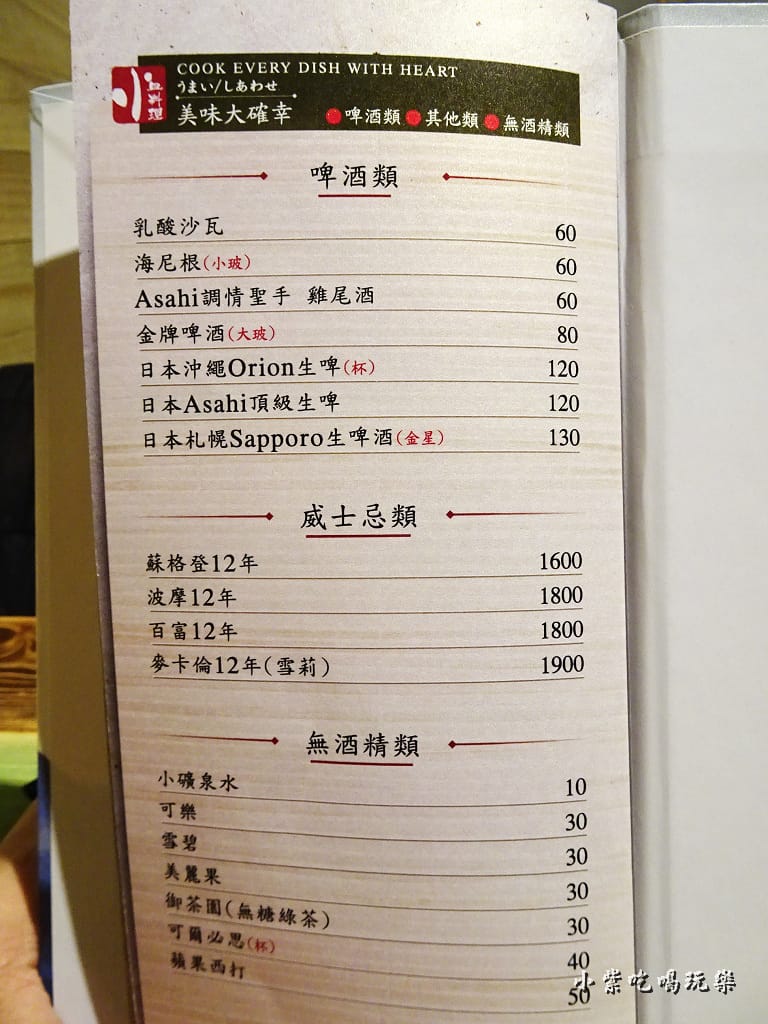 小皿料理
COOK EVERY DISH WITH HEART
うまい/しあわせ
美味大確幸 ●啤酒類 ●其他類 ●無酒精類
啤酒類
乳酸沙瓦 60
海尼根(小玻) 60
Asahi調情聖手 雞尾酒 60
金牌啤酒(大玻) 80
日本沖繩Orion生啤(杯) 120
日本Asahi頂級生啤 120
日本札幌Sapporo生啤酒(金星) 130
威士忌類
蘇格登12年 1600
波摩12年 1800
百富12年 1800
麥卡倫12年(雪莉) 1900
無酒精類
小礦泉水 10
可樂 30
雪碧 30
美麗果 30
御茶園(無糖綠茶) 30
可爾必思(杯) 40
蘋果西打 50
小紫吃喝玩樂